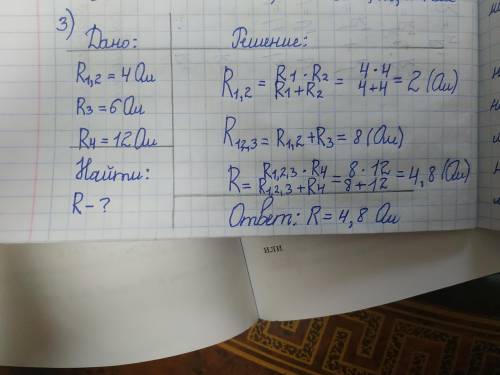 3)
Дано:
R1,2 = 4 Ом
R3 = 6 Ом
R4 = 12 Ом
Найти:
R - ?
Решение:
R1,2 = R1 · R2 / R1 + R2 = 4 · 4 / 4 + 4 = 2 (Ом)
R12,3 = R1,2 + R3 = 8 (Ом)
R = R1,2,3 · R4 / R1,2,3 + R4 = 8 · 12 / 8 + 12 = 4,8 (Ом)
Ответ: R = 4,8 Ом
или